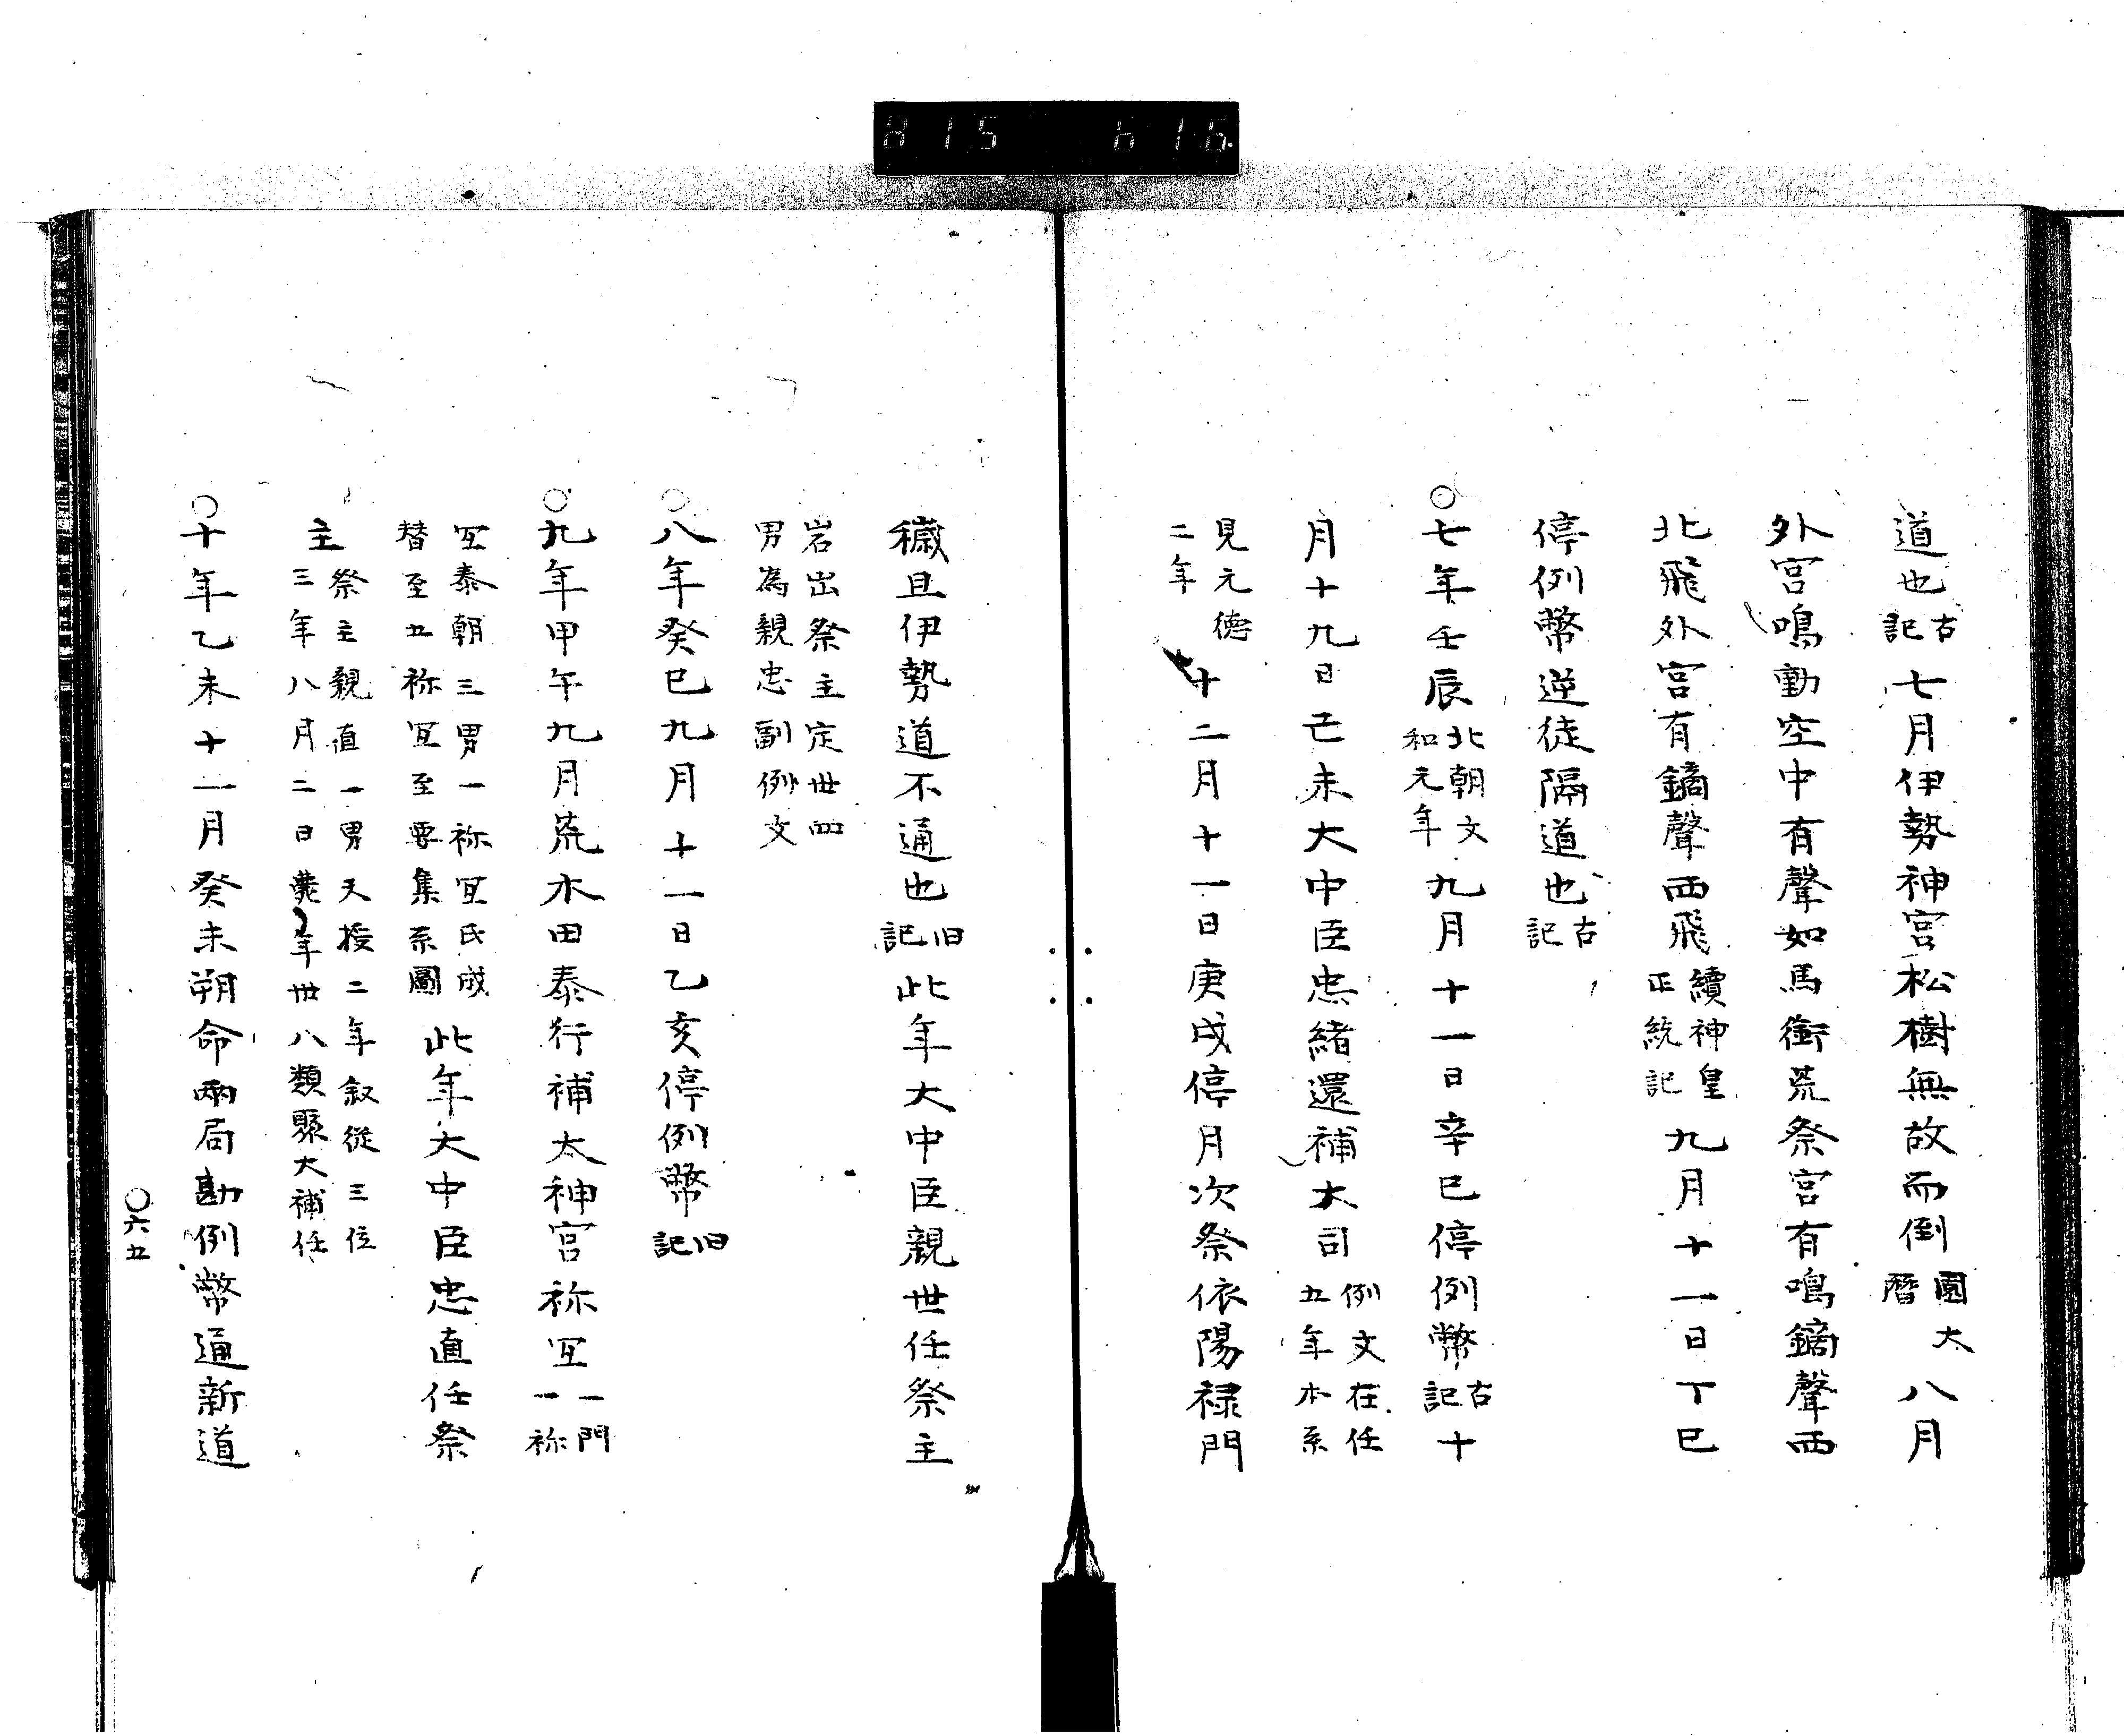 815 616
道也古記七月伊勢神宮松樹無故而倒園太暦八月
外宮鳴動空中有聲如馬銜荒祭宮有鳴鏑聲西
北飛外宮有鏑聲西飛續神皇正統記九月十一日丁巳
停例幣逆徒隔道也古記
○七年壬辰北朝文和元年九月十一日辛巳停例幣古記十
月十九日己未大中臣忠緒還補大司例文在任五年本系
見元德二年十二月十一日庚戌停月次祭依陽禄門
穢且伊勢道不通也旧記此年大中臣親世任祭主
岩出祭主定世四男為親忠副例文
○八年癸巳九月十一日乙亥停例幣旧記
○九年甲午九月荒木田泰行補太神宮祢冝一門一祢
冝泰朝三男一祢冝氏成替至五祢冝至要集系圖此年大中臣忠直任祭
主祭主親直一男天授二年叙從三位三年八月二日薨年卅八類聚大補任
○十年乙未十一月癸未朔命兩局勘例幣通新道
○六五